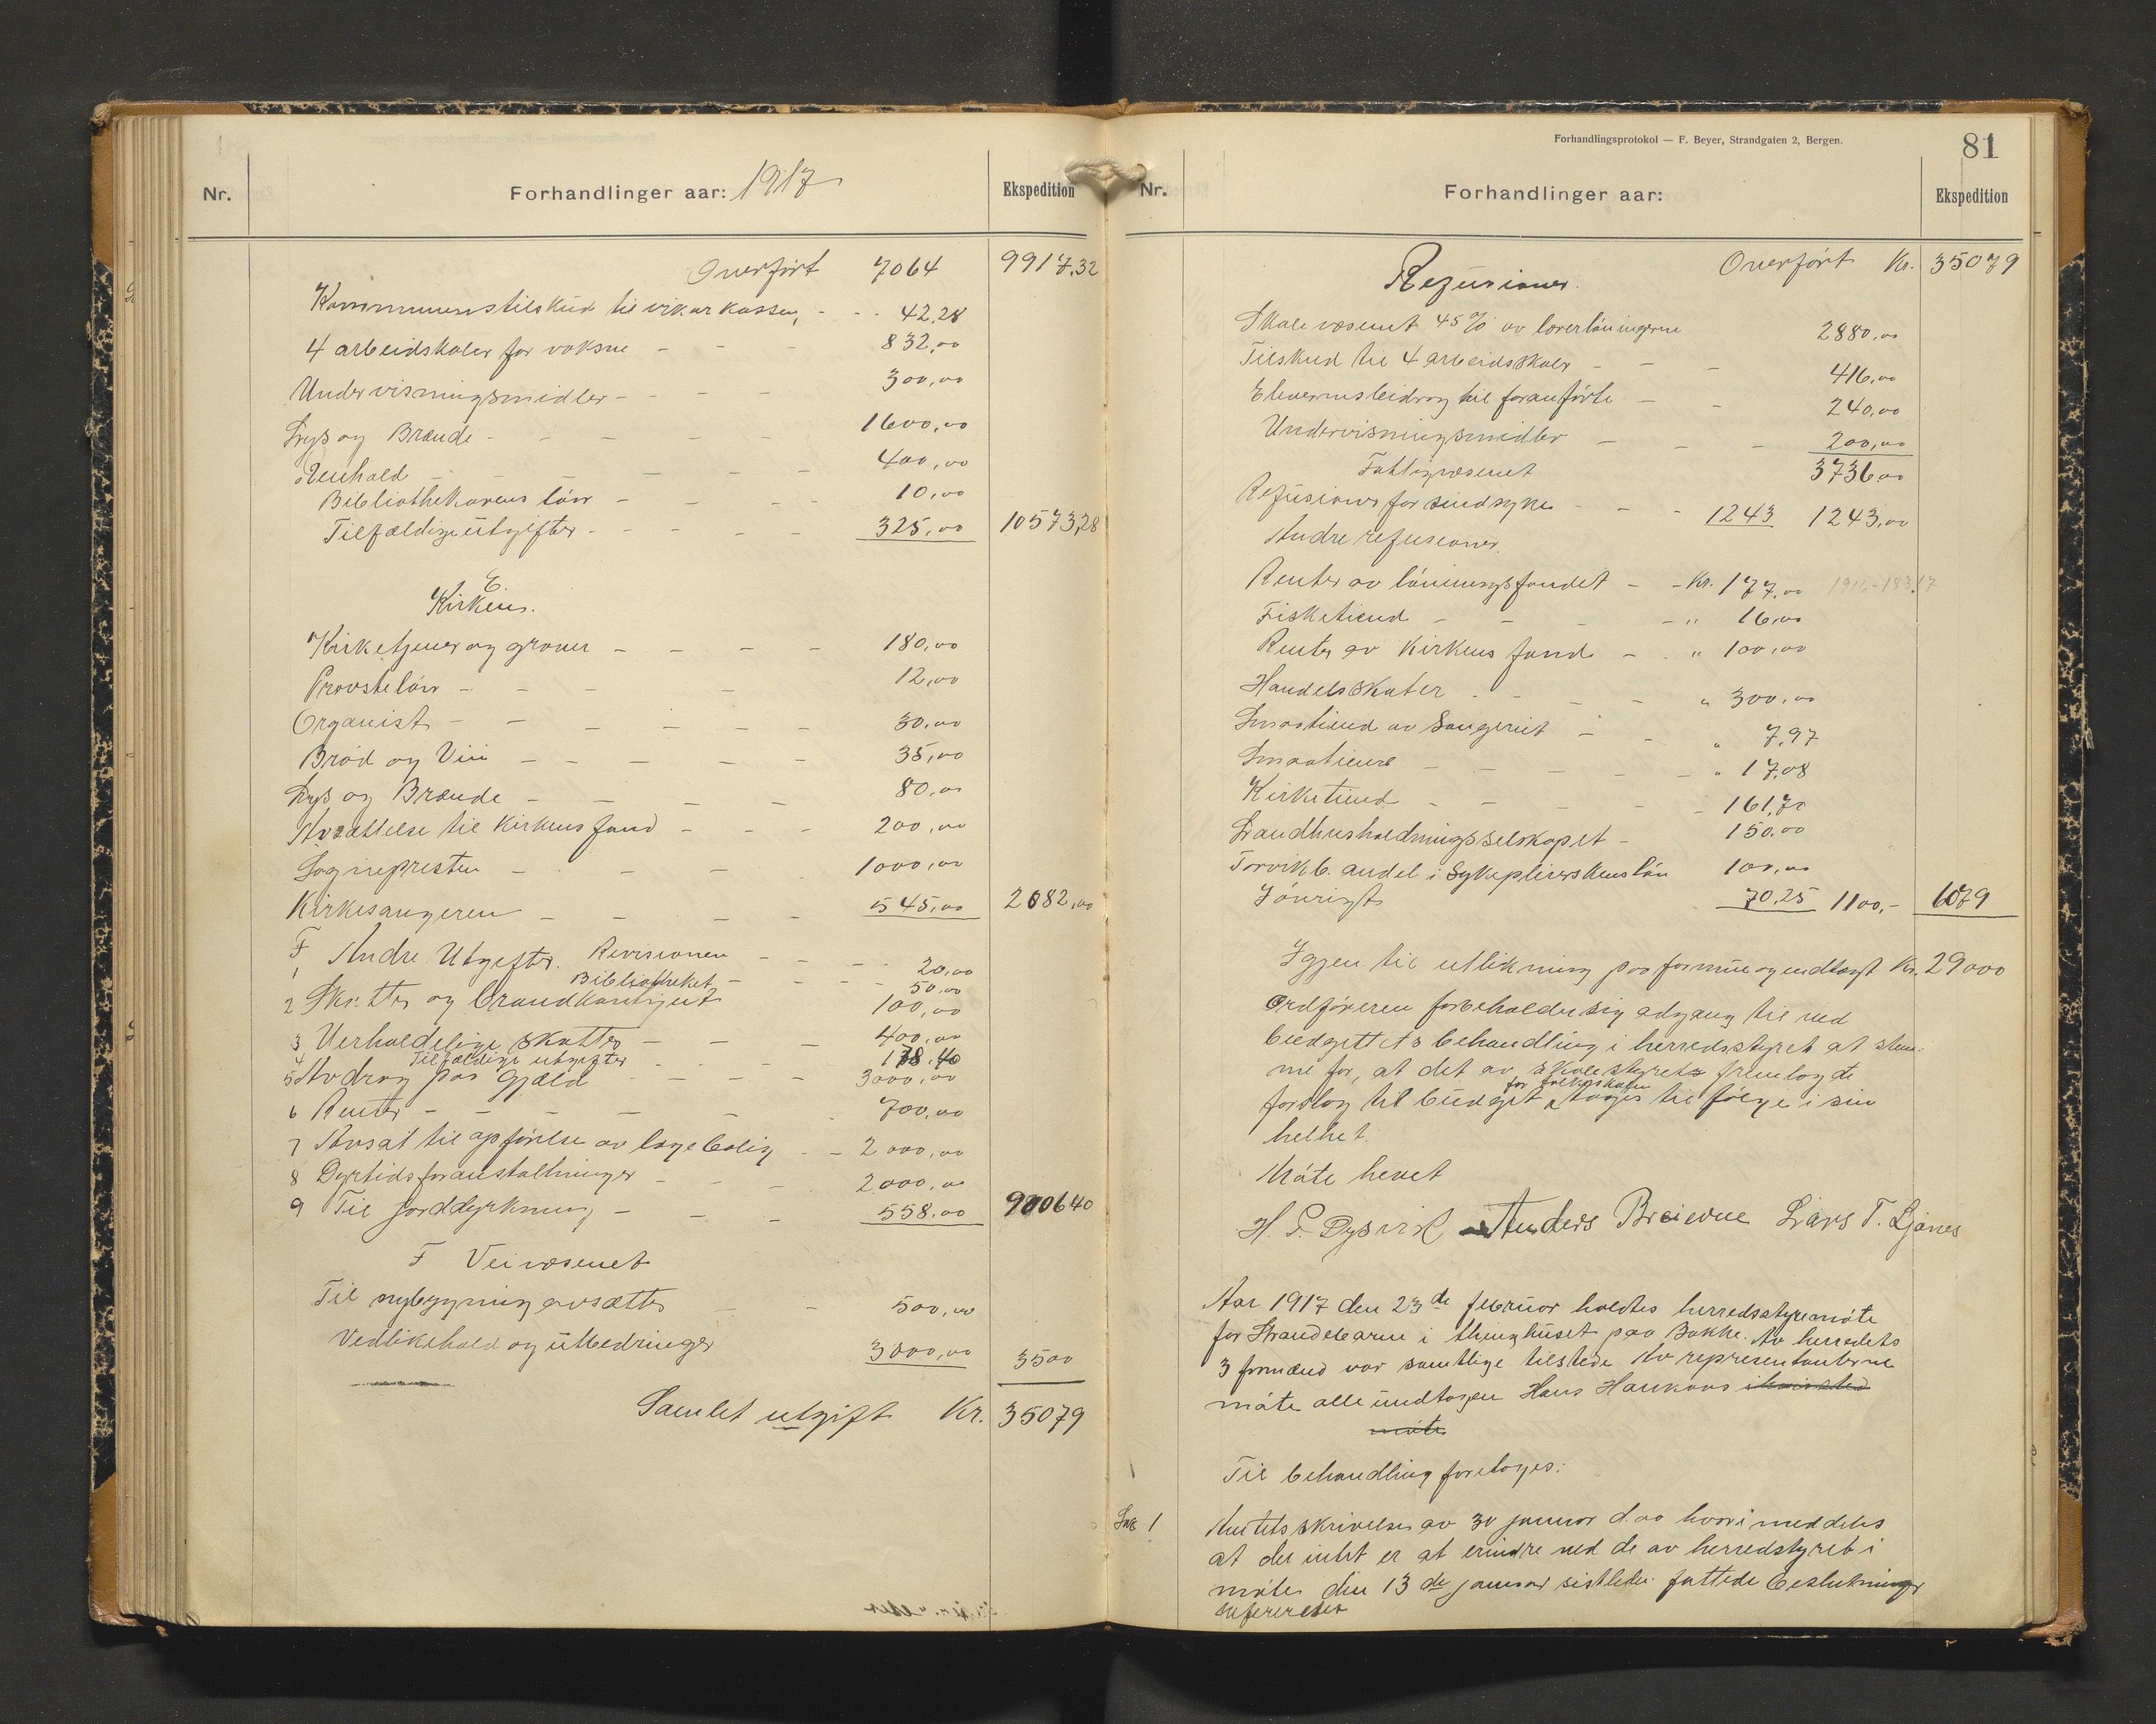 Nr. Forhandlinger aar: 1917 Ekspedition
Overført 7064 9917,32
Kommunens tilskud til vikarkassen, - - - 42,28
4 arbeidskoler for voksne - - - 832,00
Undervisningsmidler - - - - 300,00
Lys og Brænde - - - - - 1600,00
Renhold - - - - - 400,00
Bibliothekarens løn - - - - 10,00
Tilfældige utgifter - - - - - 325,00 10573,28
E.
Kirken.
Kirketjener og graver - - - - 180,00
Provsteløn - - - - 12,00
Organist - - - - - - 30,00
Brød og Vin - - - - - 35,00
Lys og Brænde - - - - 80,00
Avsættelse til Kirkens fond - - - 200,00
Sognepresten - - - - 1000,00
Kirkesangeren - - - - 545,00 2082,00
F Andre Utgifter. Revisionen - - - - 20,00
1 Bibliotheket - - - - 50,00
2 Skatter og brandkontingent 100,00
3 Uerholdelige skatter - - - 400,00
4 Tilfældige utgifter - - - 178.40
5 Avdrag paa Gjæld - - - - 3000,00
6 Renter - - - - - - 700,00
7 Avsat til opførelse av lægebolig - - 2000,00
8 Dyrtidsforanstaltninger - - - 2000,00
9 Til jorddyrkning - - - 558.00 900640
F Veivæsenet
Til nybygning avsættes - - 500,00
Vedlikehold og utbedringer 3000,00 3500
Samlet utgift Kr. 35079
Forhandlingsprotokol — F. Beyer, Strandgaten 2, Bergen.
81
Nr. Forhandlinger aar: Ekspedition
Overført Kr. 35079
Refusioner.
Skolevæsenet 45 % av lærerlønningerne 2880,00
Tilskud til 4 arbeidsskoler - - - 416,00
Elevernes bidrag til foranførte - - 240,00
Undervisningsmidler - - - 200,00
Fattigvæsenet 3736,00
Refusioner for sindsyke - - - 1243 1243,00
Andre refusioner.
Renter av lønningsfondet - - Kr. 177,00
Fisketiend - - - - " 16,00
Renter av Kirkens fond - - " 100,00
Handelsskatter - - - - " 300,00
Smaatiend av Sangeriet - - " 7,97
Smaatiend - - - - - " 17,08
Kirketiend - - - - - 161,70
Landhusholdningsselskapet - 150.00
Torvikb. andel i Sykepleierskens løn 100,00
Iøvrigt 70,25 1100,- 6079
Igjen til utlikning paa formue og indtægt Kr. 29000
Ordføreren forbeholder sig adgang til ved
budgettets behandling i herredsstyret at stem-
me for, at det av skolestyret fremlagte
for folkeskolen
forslag til budget tages til følge i sin
helhet.
Møte hevet
H. P. Dysvik Anders Breievne Lars T. Ljønes
Aar 1917 den 23de februar holdtes herredsstyremøte
for Strandebarm i thinghuset paa Bakke. Av herredets
3 formænd var samtlige tilstede Av representanterne
møte alle undtagen Hans Haukaas
møte
Til behandling foretoges:
Sak 1 Amtets skrivelse av 30 januar d.aa hvori meddeles
at der intet er at erindre ved de av herredstyret i
møte den 13de januar sistleden fattede beslutninger
refereredes